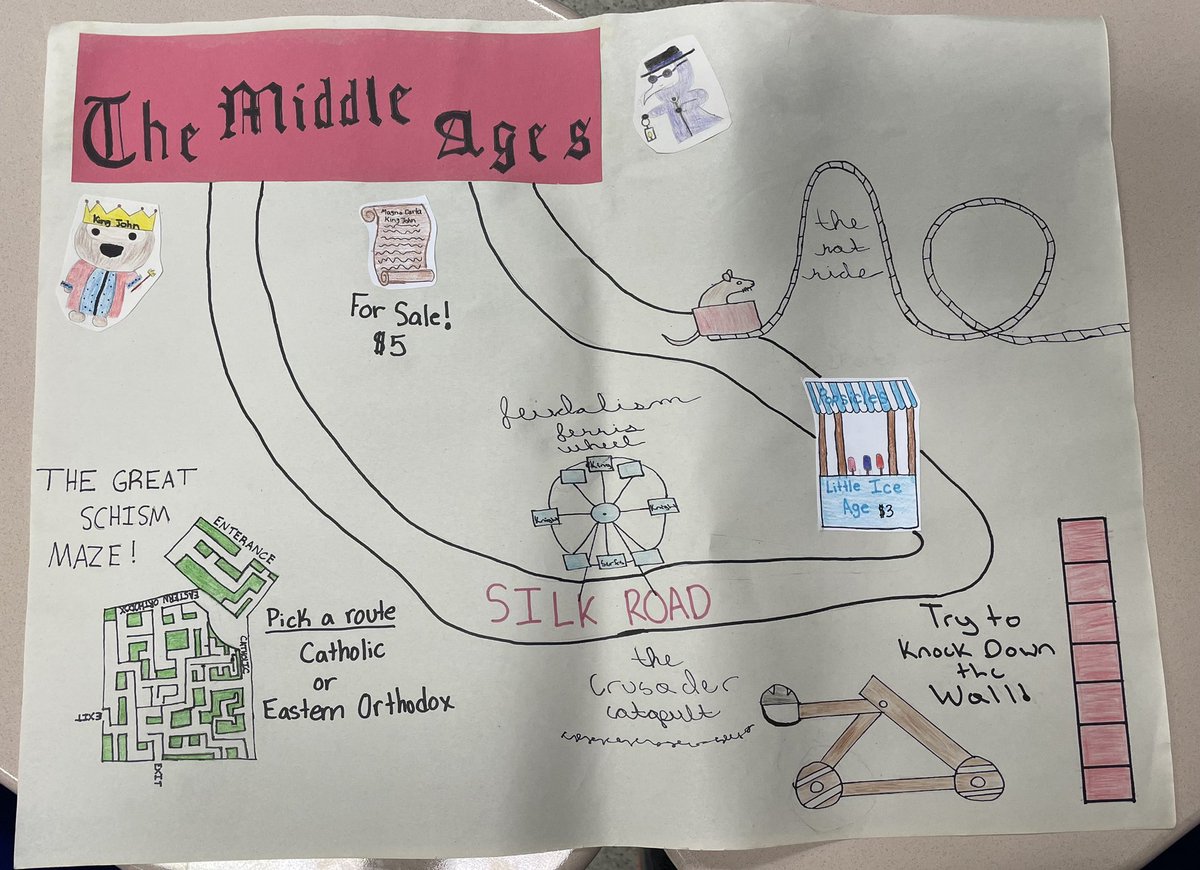 The Middle Ages
King John
Magna Carta
King John
For Sale!
$5
the
rat
ride
Popsicles
Little Ice
Age $3
feudalism
ferris
wheel
King
Knight
Knight
Serfs
SILK ROAD
THE GREAT
SCHISM
MAZE!
ENTERANCE
EASTERN ORTHODOX
CATHOLIC
EXIT
EXIT
Pick a route
Catholic
or
Eastern Orthodox
the
Crusader
catapult
Try to
Knock Down
the
Wall!